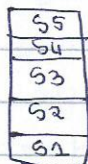 S5
S4
S3
S2
S1